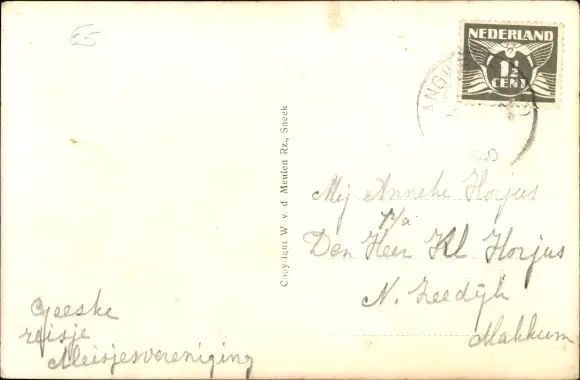 £5
NEDERLAND
1½
CENT
Copyright W. v. d. Meulen Rz., Sneek
Mej Anneke Horjus
P/a
Den Heer Kl Horjus
N. Zeedijk
Makkum
Geeske
reisje
Meisjesvereniging